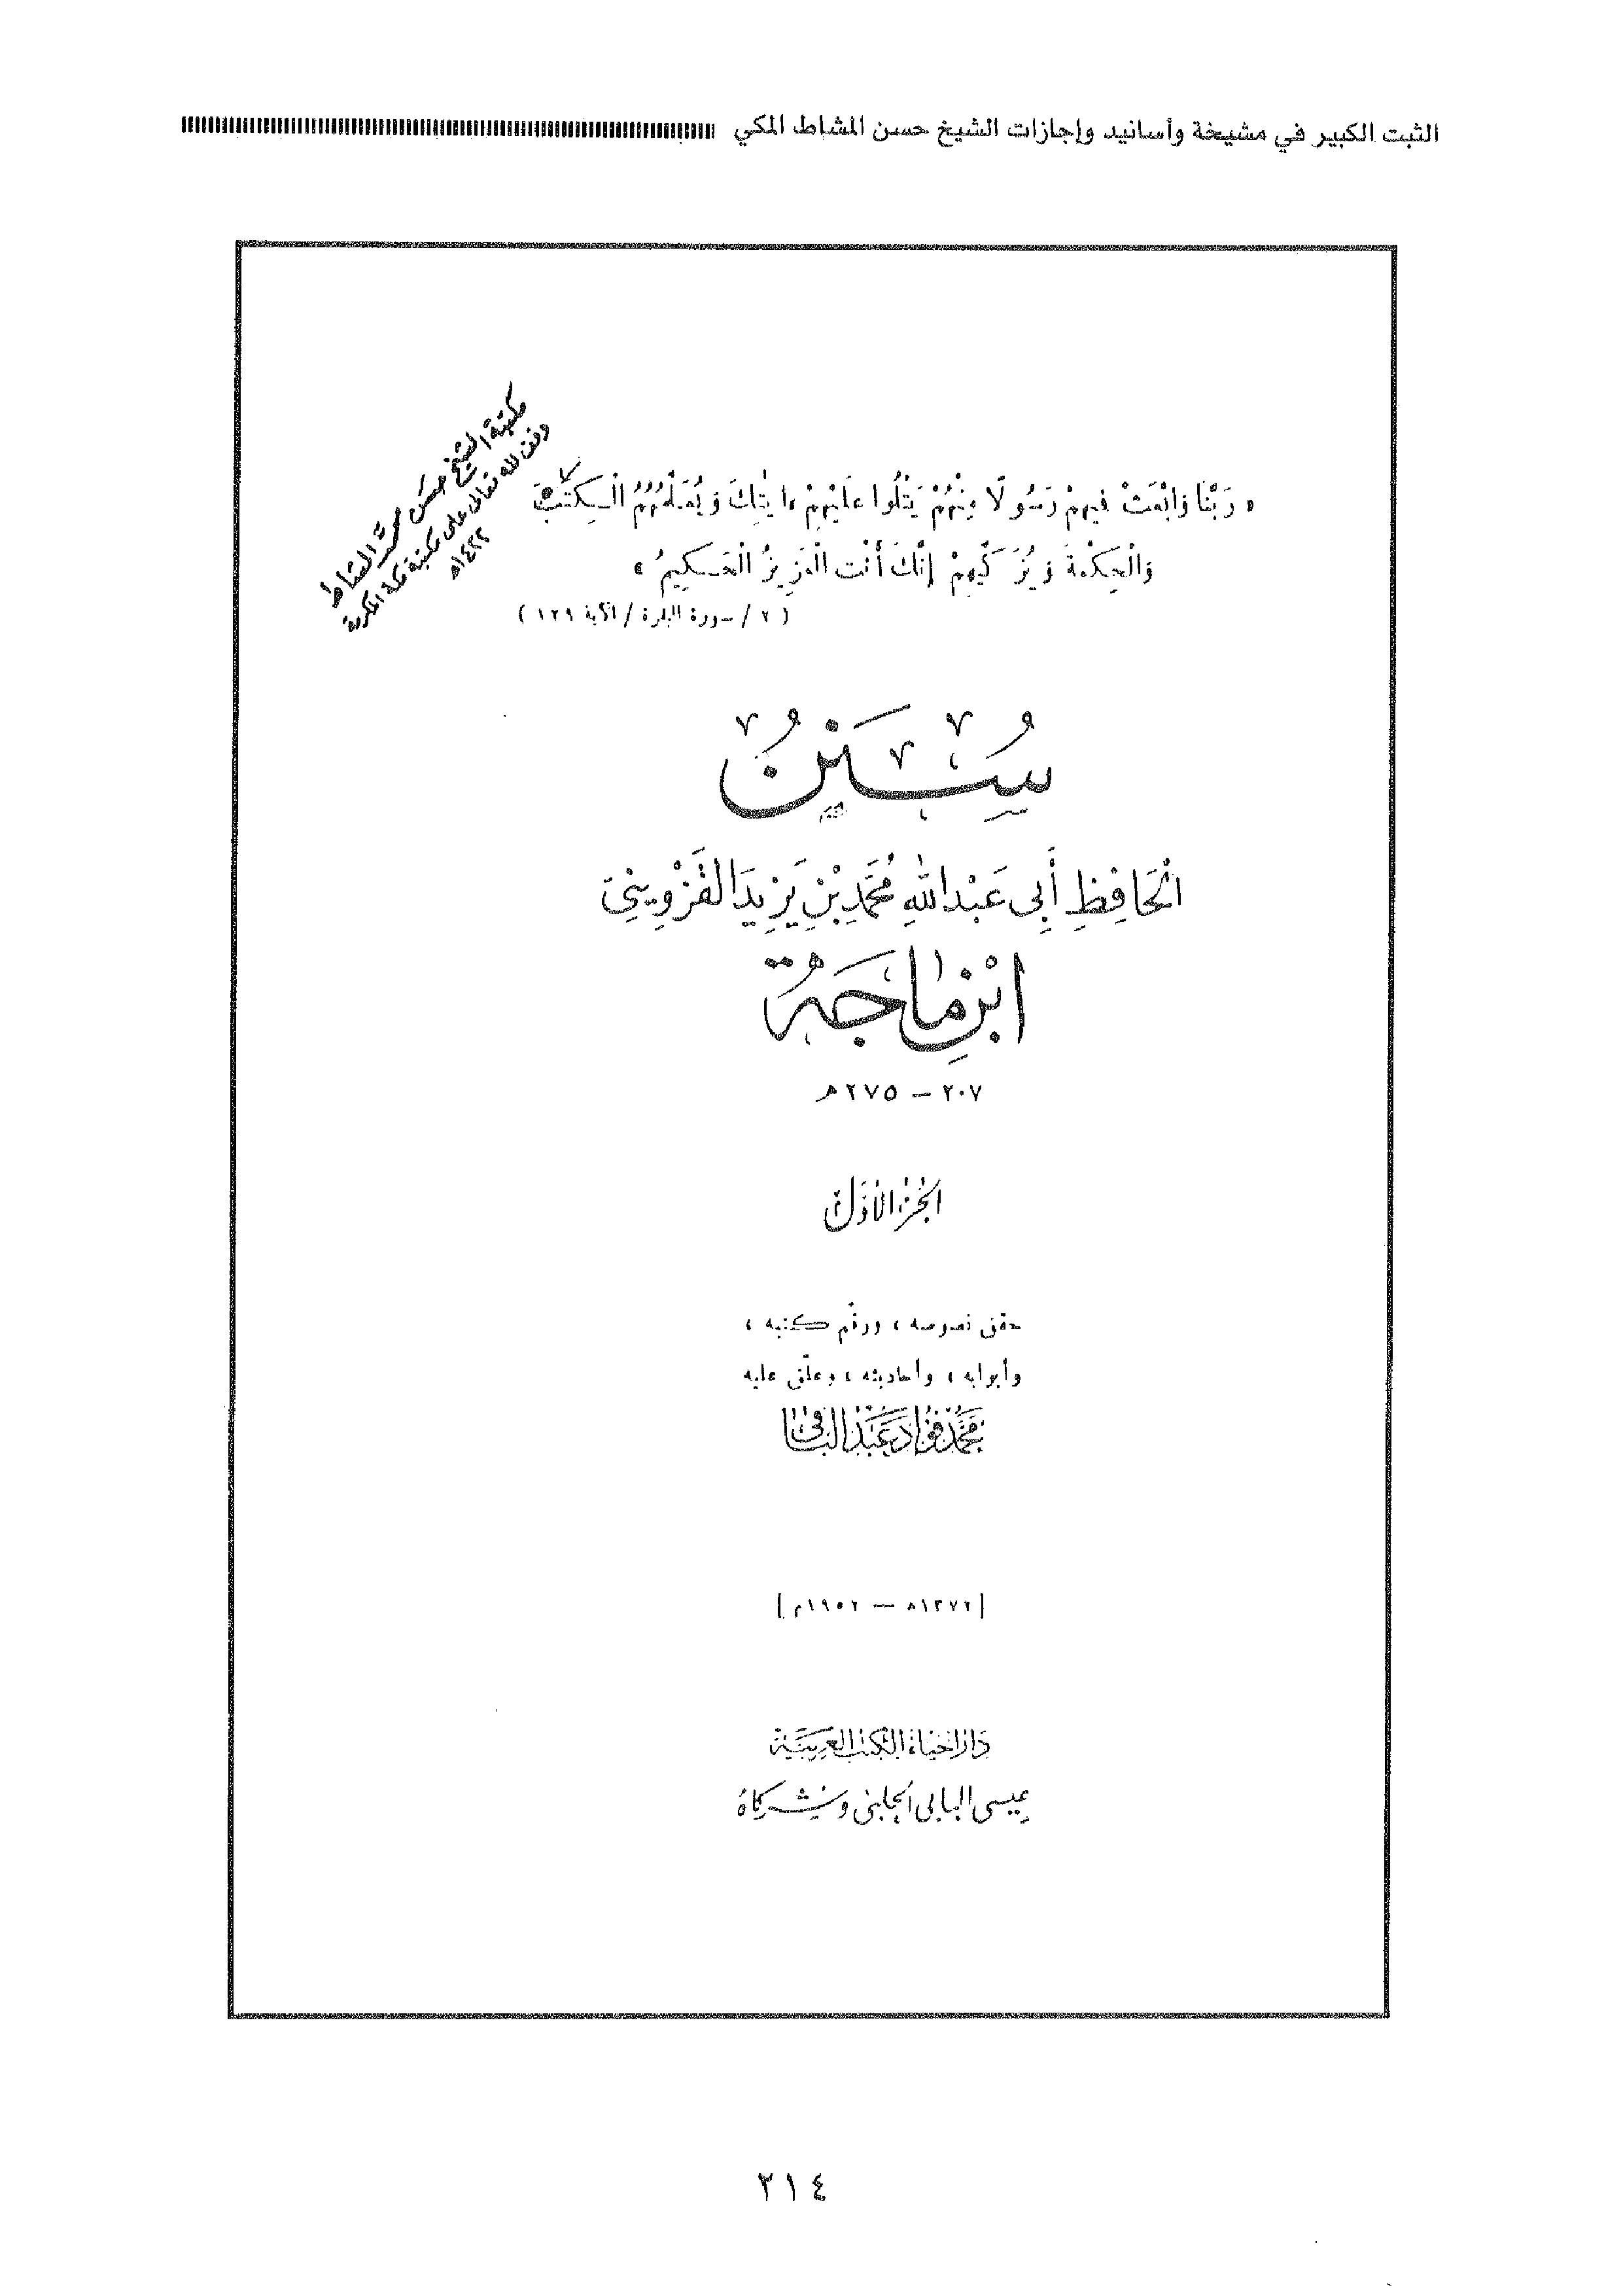 الثبت الكبير في مشيخة وأسانيد وإجازات الشيخ حسن المشاط المكي
مكتبة الشيخ حسن محمد المشاط
وقف لله تعالى على مكتبة مكة المكرمة
١٤٢٢هـ
« رَبَّنَا وَابْعَثْ فِيهِمْ رَسُولًا مِنْهُمْ يَتْلُوا عَلَيْهِمْ ءَايَٰتِكَ وَيُعَلِّمُهُمُ الْكِتَٰبَ
وَالْحِكْمَةَ وَيُزَكِّيهِمْ إِنَّكَ أَنْتَ الْعَزِيزُ الْحَكِيمُ »
( ٢ / سورة البقرة / الآية ١٢٩ )
سُنَنُ
الْحَافِظِ أَبِي عَبْدِ اللهِ مُحَمَّدِ بْنِ يَزِيدَ الْقَزْوِينِيّ
ابْنِ مَاجَةْ
٢٠٧ – ٢٧٥ هـ
الجزء الأول
حقق نصوصه ، ورقّم كتبه ،
وأبوابه ، وأحاديثه ، وعلّق عليه
محمد فؤاد عبد الباقي
[ ١٣٧٢هـ — ١٩٥٢م ]
دار إحياء الكتب العربية
عيسى البابى الحلبى وشركاه
٢١٤